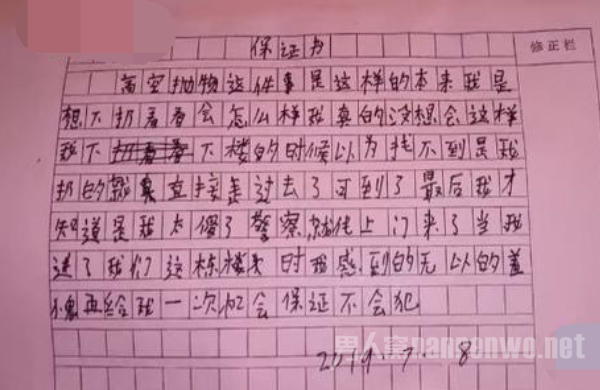 保证书
修正栏
高空抛物这件事是这样的本来我是
想下扔看看会怎么样我真的没想会这样
我下扔看看下楼的时候以为找不到是我
扔的就直接走过去了可到了最后我才
知道是我太傻了警察就找上门来了当我
进了我们这栋楼 时我感到的无以的羞
愧再给我一次机会保证不会犯
2019.7.8
男人窝nanrenwo.net